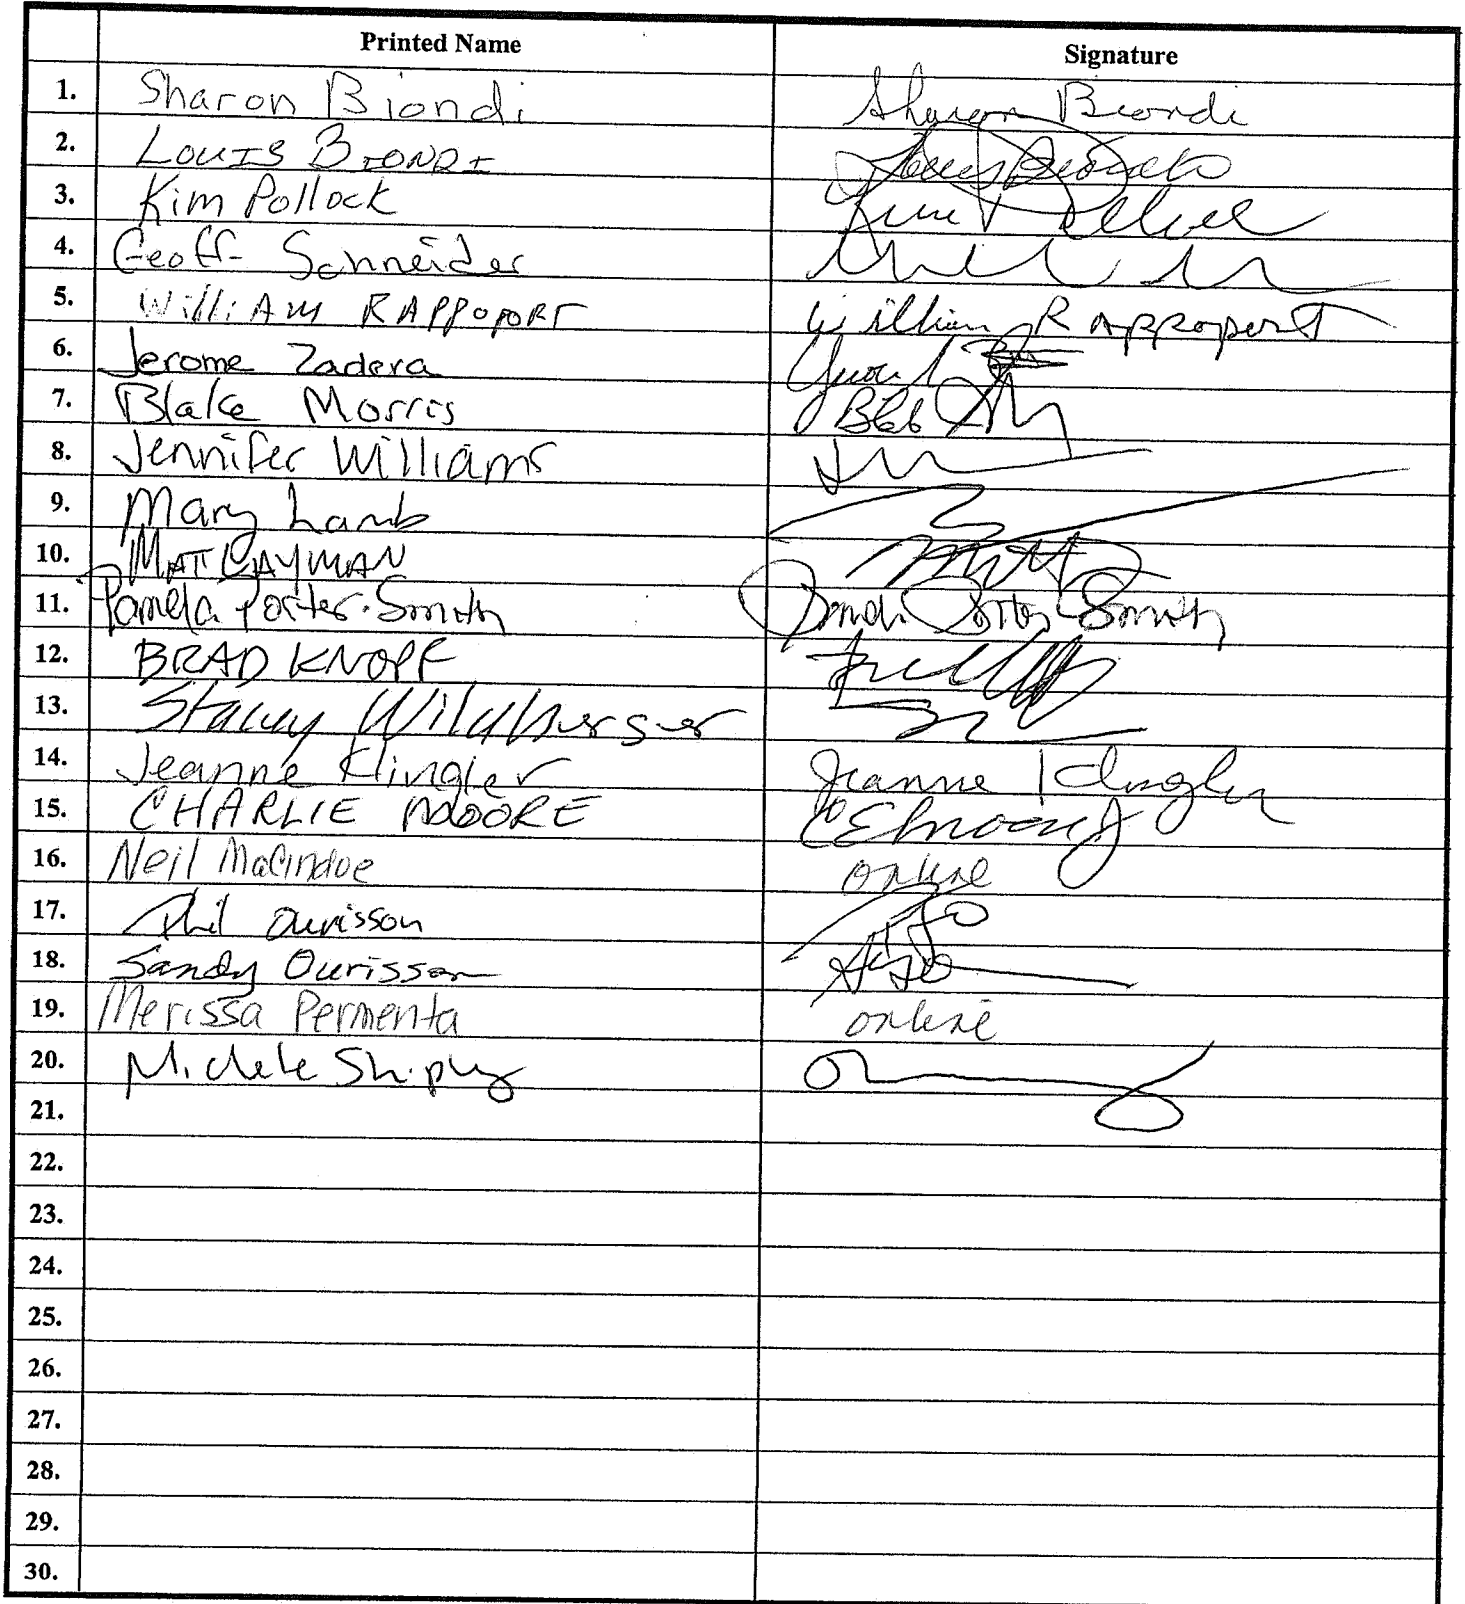 Printed Name Signature
1. Sharon Biondi Sharon Biondi
2. LOUIS BIONDI
3. Kim Pollock Kim
4. Geoff Schneider
5. William RAPPOPORT William RAPPOPORT
6. Jerome Zadera
7. Blake Morris
8. Jennifer Williams
9. Mary Lamb
10. MATT GAYMAN
11. Pamela Porter-Smith Porter Smith
12. BRAD KNOPF
13. Stacey Wildberger
14. Jeanne Klingler Jeanne Klingler
15. CHARLIE MOORE
16. Neil MacIndoe online
17. Phil Ourisson
18. Sandy Ourisson
19. Merissa Permenta online
20. Michele Shipley
21.
22.
23.
24.
25.
26.
27.
28.
29.
30.